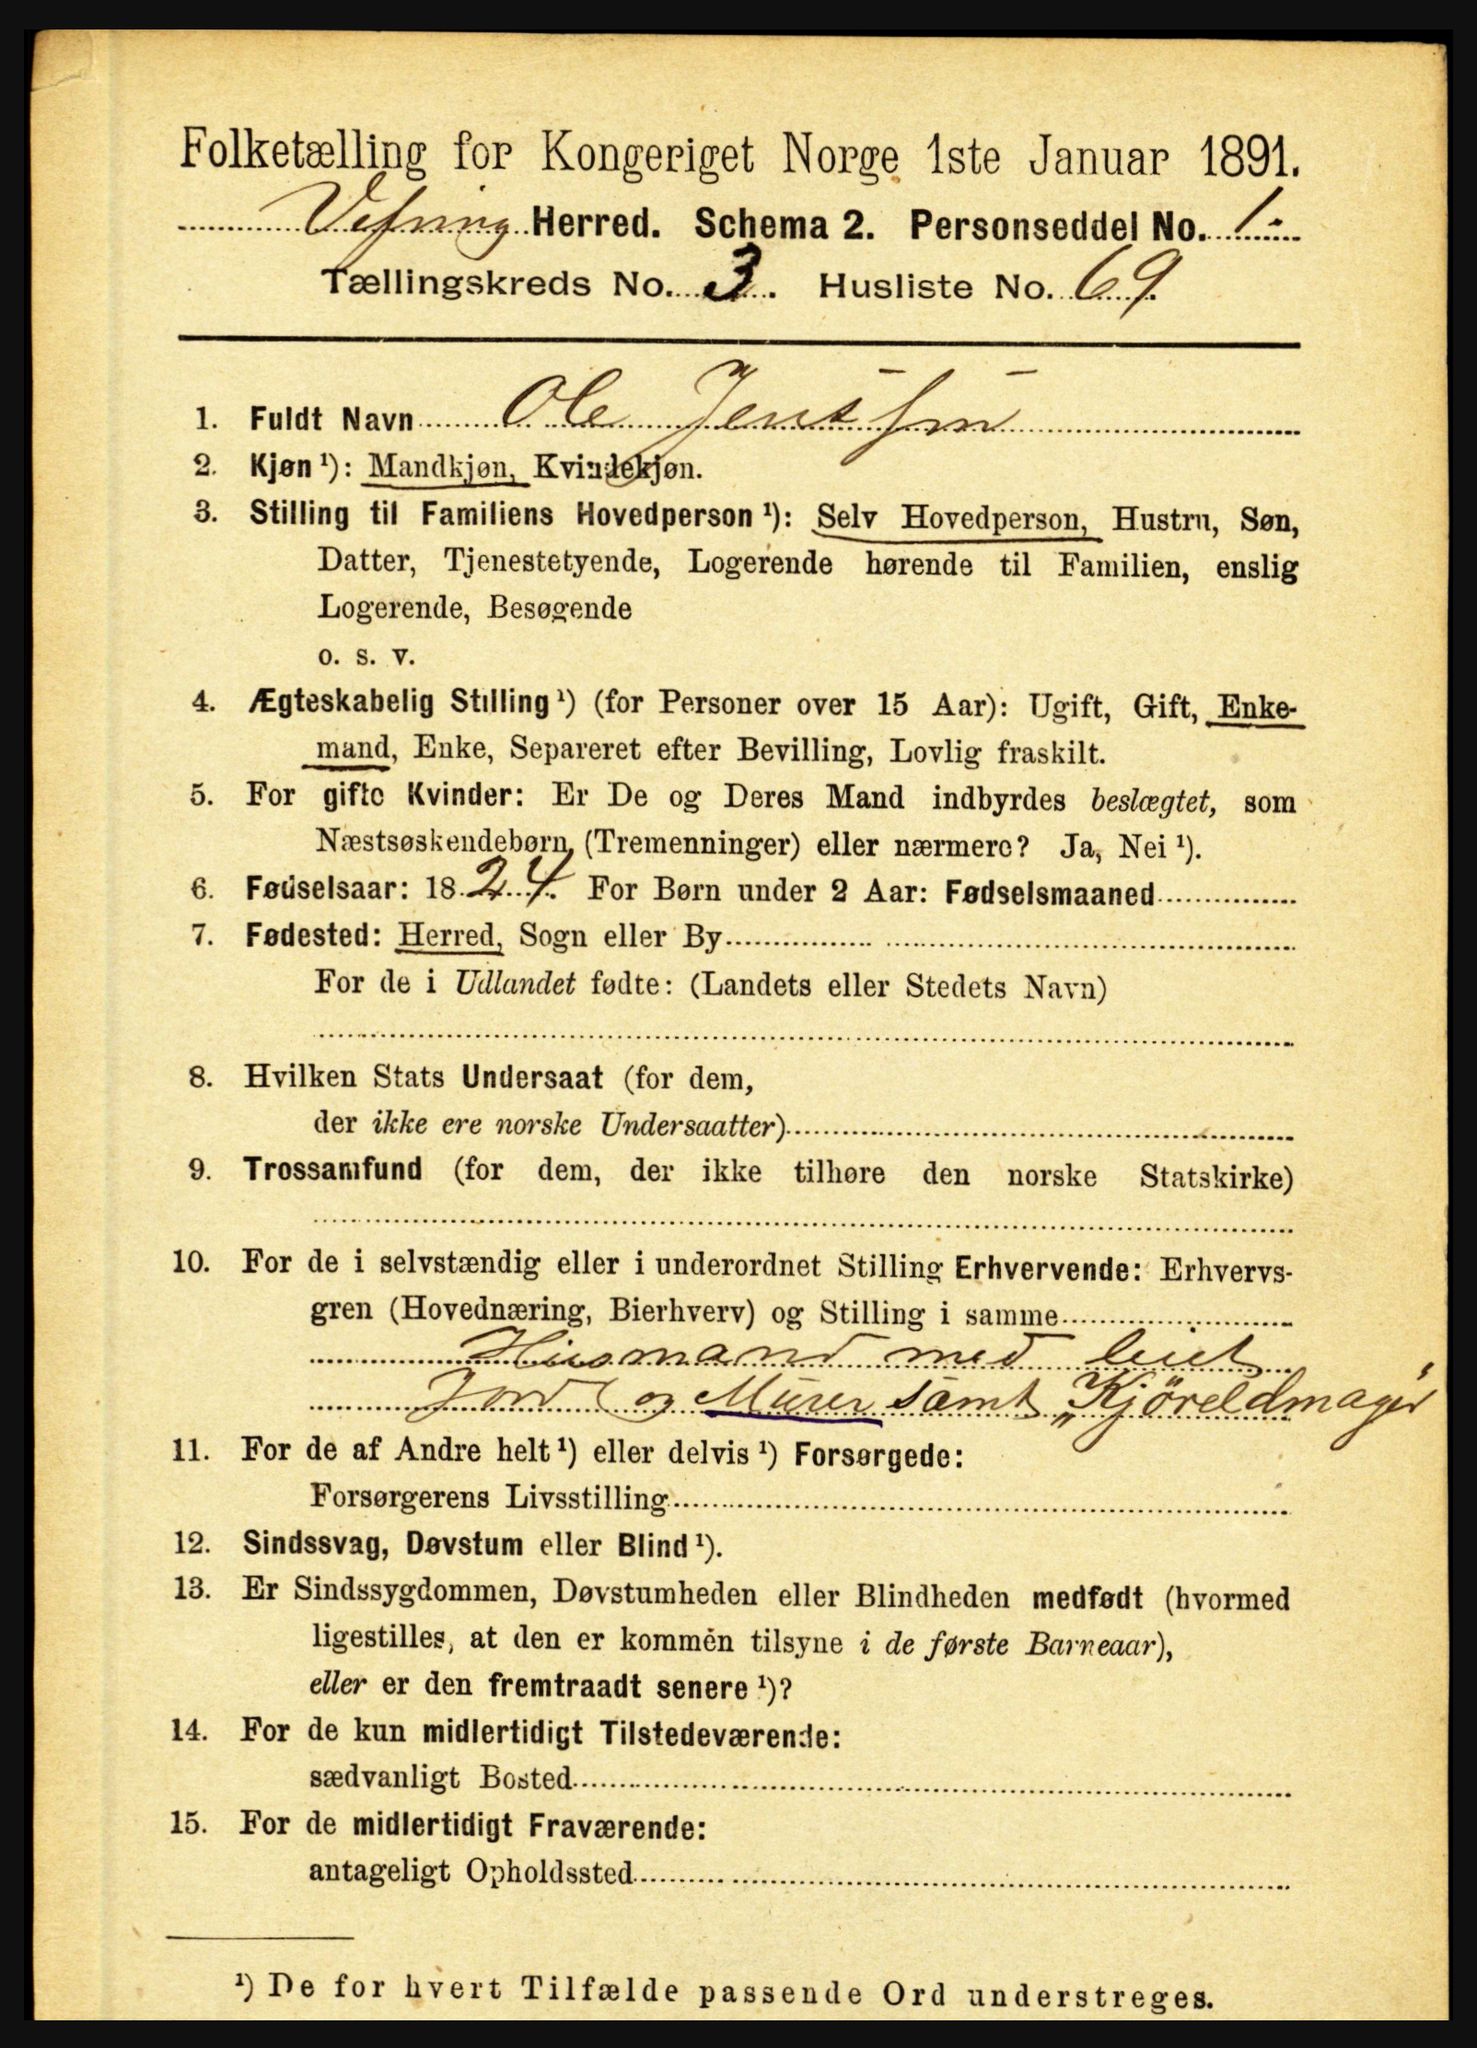 Folketælling for Kongeriget Norge 1ste Januar 1891.
Vefsning Herred. Schema 2. Personseddel No. 1.
Tællingskreds No. 3. Husliste No. 69.
1. Fuldt Navn Ole Jenssen
2. Kjøn ¹): Mandkjøn, Kvindekjøn.
3. Stilling til Familiens Hovedperson ¹): Selv Hovedperson, Hustru, Søn,
Datter, Tjenestetyende, Logerende hørende til Familien, enslig
Logerende, Besøgende
o. s. v.
4. Ægteskabelig Stilling ¹) (for Personer over 15 Aar): Ugift, Gift, Enke-
mand, Enke, Separeret efter Bevilling, Lovlig fraskilt.
5. For gifte Kvinder: Er De og Deres Mand indbyrdes beslægtet, som
Næstsøskendebørn (Tremenninger) eller nærmere? Ja, Nei ¹).
6. Fødselsaar: 1824. For Børn under 2 Aar: Fødselsmaaned
7. Fødested: Herred, Sogn eller By
For de i Udlandet fødte: (Landets eller Stedets Navn)
8. Hvilken Stats Undersaat (for dem,
der ikke ere norske Undersaatter)
9. Trossamfund (for dem, der ikke tilhøre den norske Statskirke)
10. For de i selvstændig eller i underordnet Stilling Erhvervende: Erhvervs-
gren (Hovednæring, Bierhverv) og Stilling i samme
Husmand med leiet
Jord og Murer samt "Kjöreldmager"
11. For de af Andre helt ¹) eller delvis ¹) Forsørgede:
Forsørgerens Livsstilling
12. Sindssvag, Døvstum eller Blind ¹).
13. Er Sindssygdommen, Døvstumheden eller Blindheden medfødt (hvormed
ligestilles, at den er kommen tilsyne i de første Barneaar),
eller er den fremtraadt senere ¹)?
14. For de kun midlertidigt Tilstedeværende:
sædvanligt Bosted
15. For de midlertidigt Fraværende:
antageligt Opholdssted
¹) De for hvert Tilfælde passende Ord understreges.